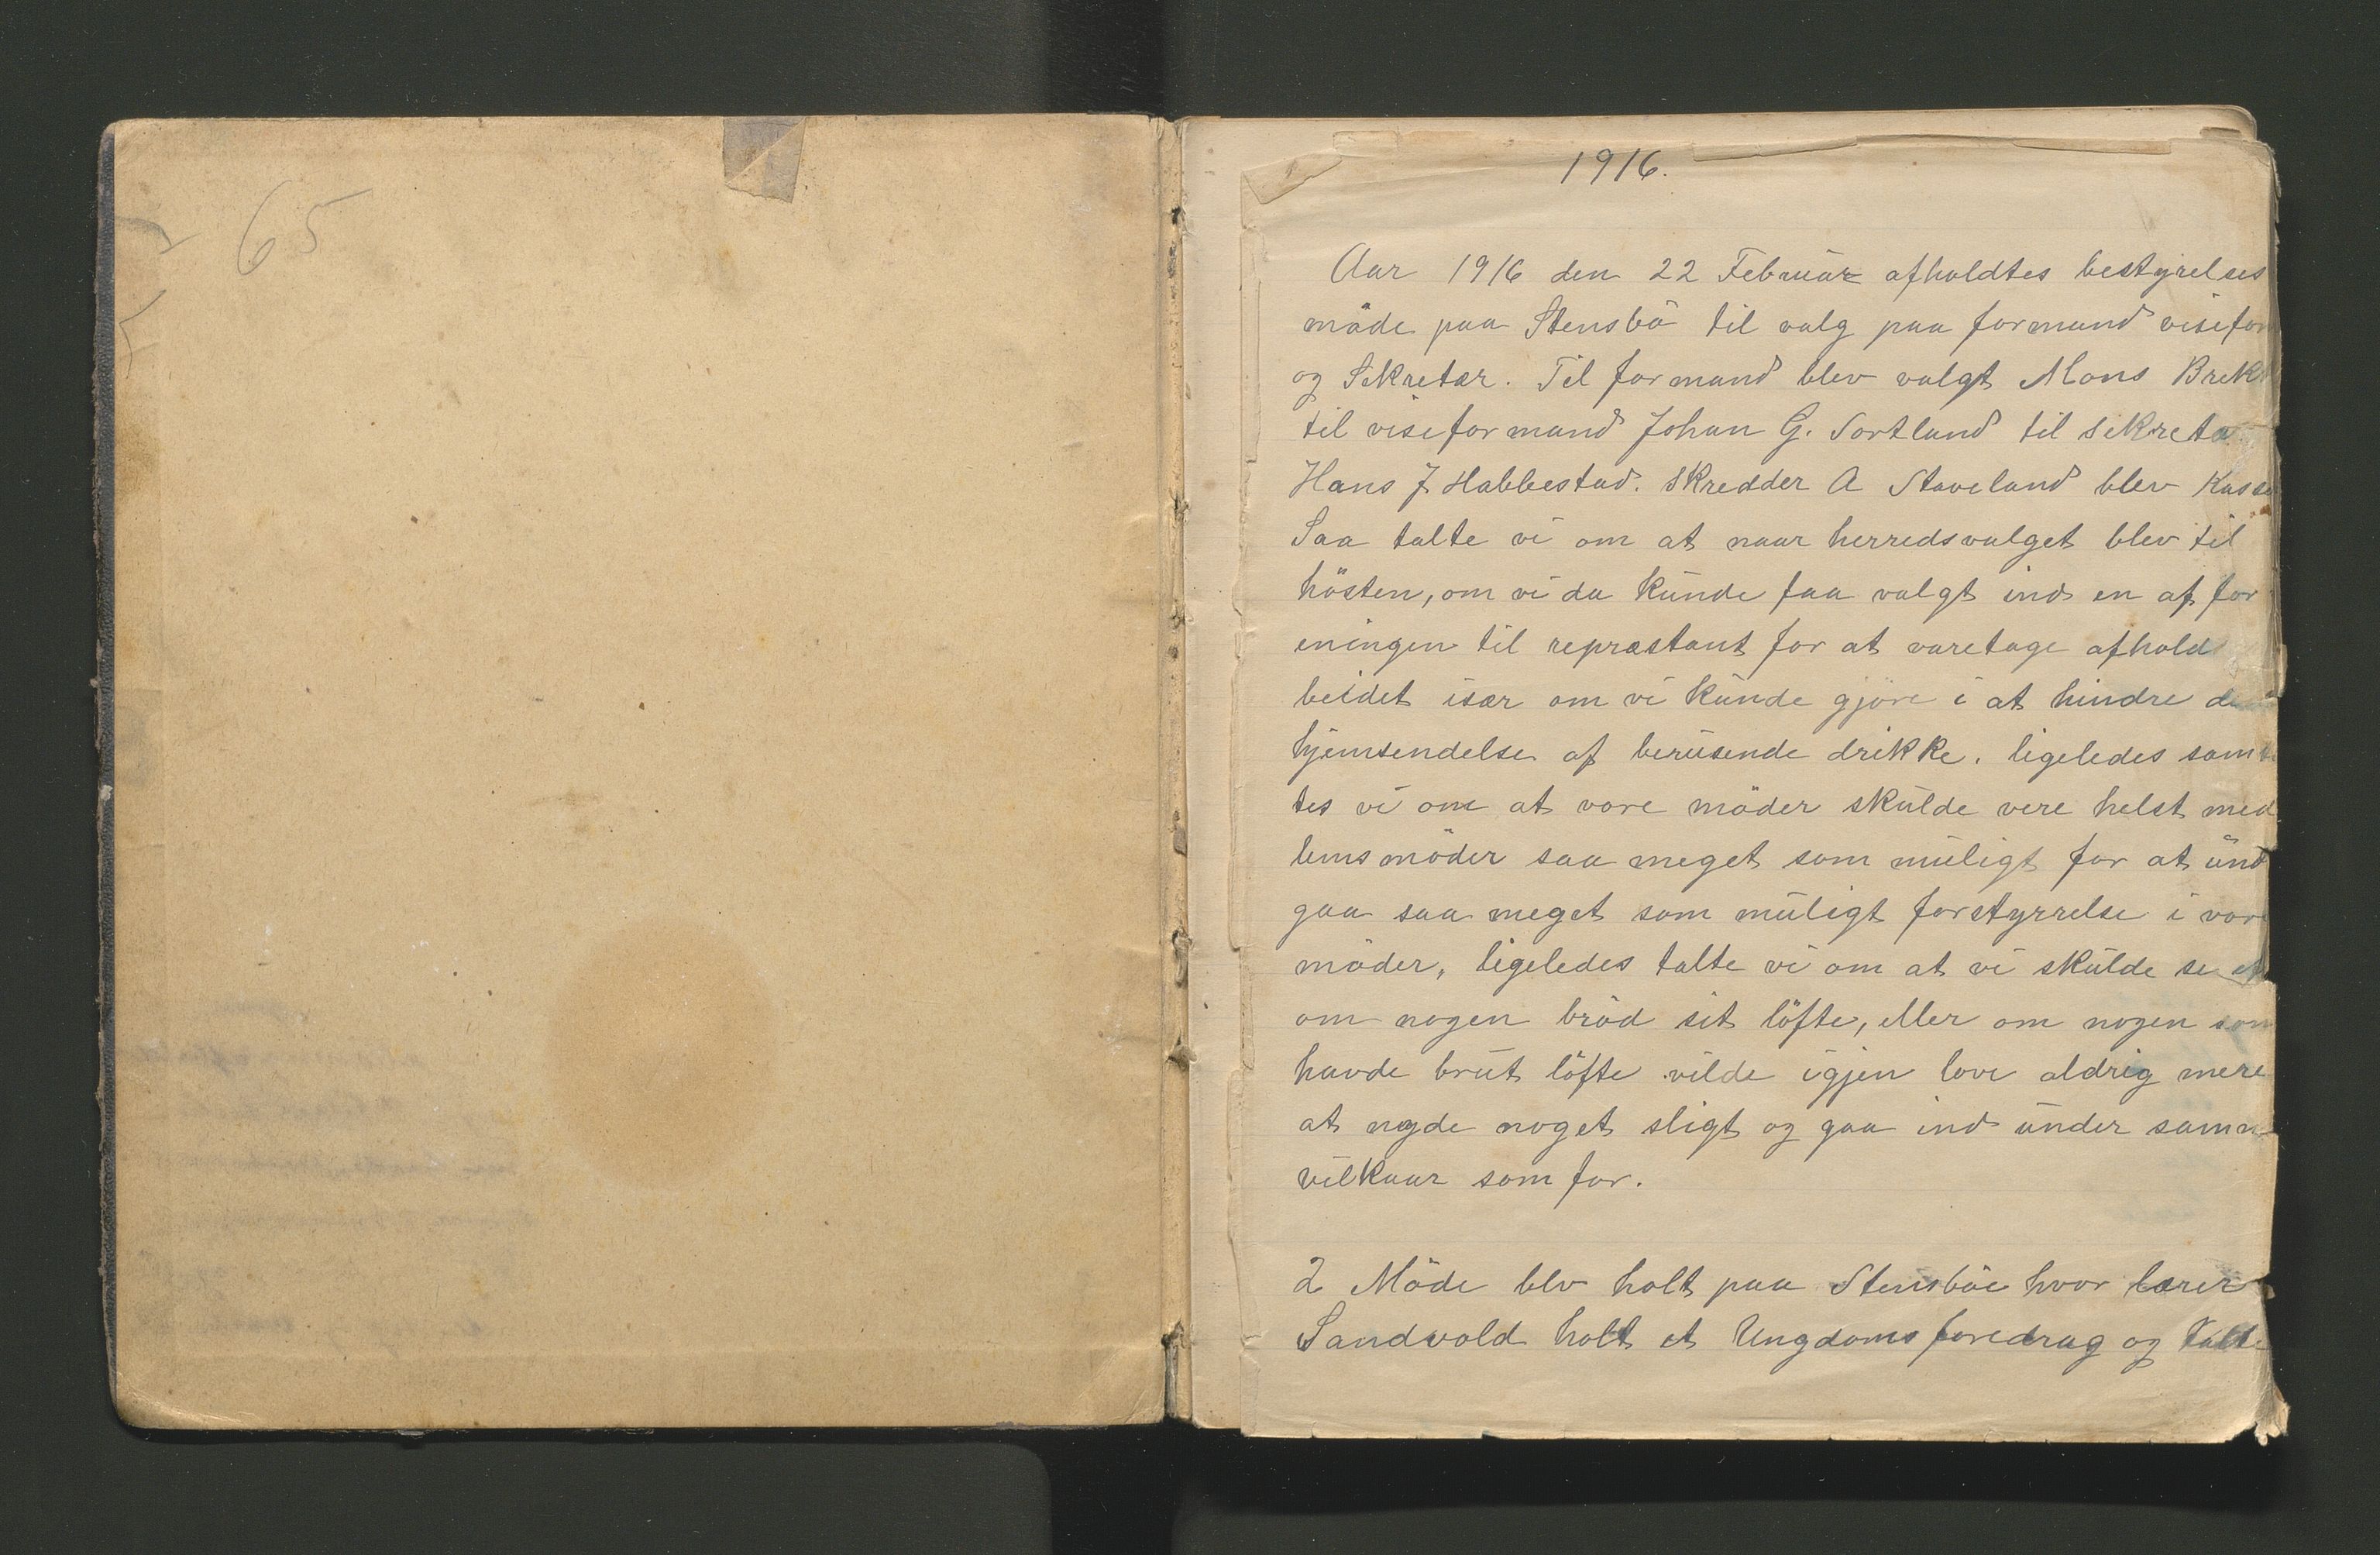 65
1916.
Aar 1916 den 22 Februar afholdtes bestyrelses
möde paa Stensbö til valg paa formand visefor
og Sekretær. Til formand blev valgt Mons Brek
til viseformand Johan G. Sortland til sekretæ
Hans J Habbestad. Skredder A Staveland blev Kasse
Saa talte vi om at naar herredsvalget blev til
hösten, om vi da kunde faa valgt ind en af for
eningen til repræstant for at varetage afholds
beidet især om vi kunde gjöre i at hindre
hjemsendelse af berusende drikke. ligeledes samt
tes vi om at vore möder skulde vere helst med
lemsmöder saa meget som muligt for at und
gaa saa meget som muligt forstyrrelse i vore
möder, ligeledes talte vi om at vi skulde se
om nogen bröd sit löfte, eller om nogen som
havde brut löfte vilde igjen love aldrig mere
at nyde noget sligt og gaa ind under samme
vilkaar som for.
2 Möde blv holt paa Stensböe hvor lærer
Sandvold holt et Ungdomsforedrag og talte